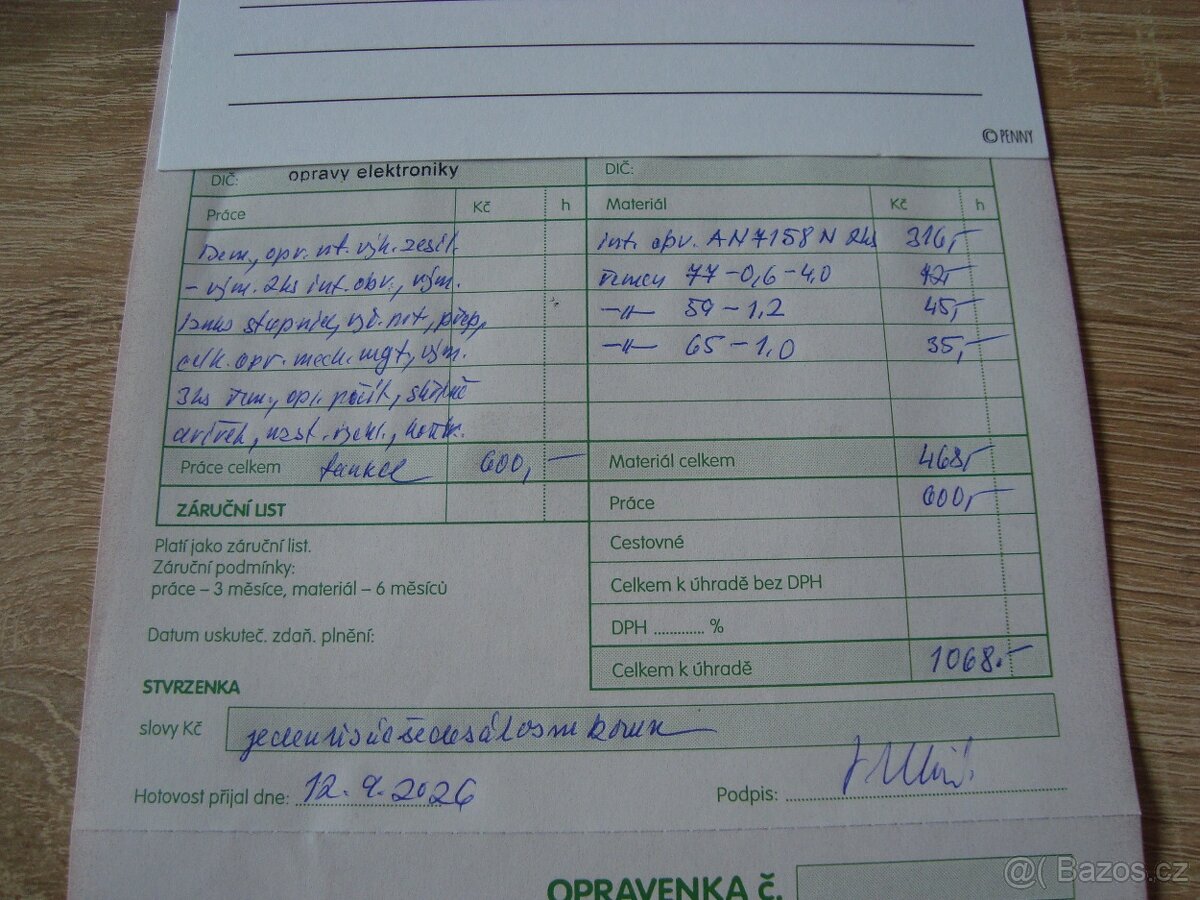 © PENNY
DIČ: opravy elektroniky DIČ:
Práce Kč h Materiál Kč h
Dem, opr. nt. výk. zesil. int. obv. AN7158N 2ks 316,-
- vým. 2ks int. obv., vým. řemen 77-0,6-4,0 72,-
stupnice, vyč. -„- 59-1,2 45,-
celk. opr. mech. mgf, vým. -„- 65-1,0 35,-
3ks řem., opr. počít.,
nast. rychl., kontr.
Práce celkem funkce 600,- Materiál celkem 468,-
ZÁRUČNÍ LIST Práce 600,-
Platí jako záruční list. Cestovné
Záruční podmínky:
práce – 3 měsíce, materiál – 6 měsíců Celkem k úhradě bez DPH
Datum uskuteč. zdaň. plnění: DPH ............ %
Celkem k úhradě 1068.-
STVRZENKA
slovy Kč jedentisícšedesátosm korun
Hotovost přijal dne: 12. 9. 2026 Podpis:
OPRAVENKA č.
@( Bazos.cz